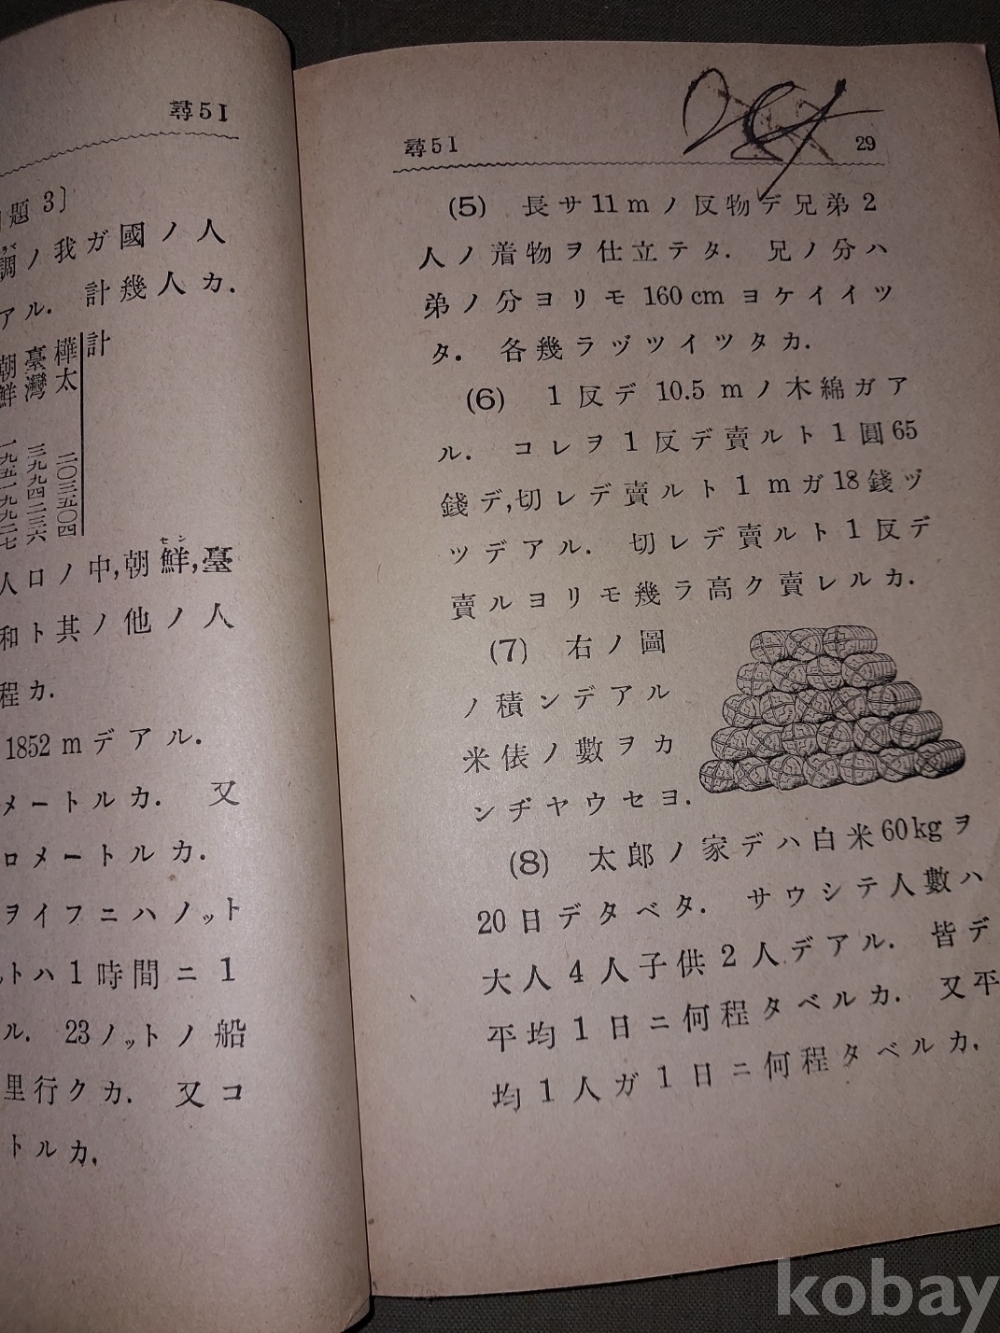 尋5I
題 3〕
調ノ我ガ國ノ人
アル. 計幾人カ.
計
樺太 二〇三五〇四
臺灣 三九九四二三六
朝鮮 一九五一九九二七
人口ノ中,朝鮮,臺
セン
和ト其ノ他ノ人
程カ.
1852 mデアル.
メートルカ. 又
ロメートルカ.
ヲイフニハノット
ットハ1時間ニ1
ル. 23ノットノ船
里行クカ. 又コ
トルカ.
尋5I 29
(5) 長サ11 mノ反物デ兄弟2
人ノ着物ヲ仕立テタ. 兄ノ分ハ
弟ノ分ヨリモ160 cmヨケイイツ
タ. 各幾ラヅツイツタカ.
(6) 1反デ10.5 mノ木綿ガア
ル. コレヲ1反デ賣ルト1圓65
錢デ,切レデ賣ルト1 mガ18錢ヅ
ツデアル. 切レデ賣ルト1反デ
賣ルヨリモ幾ラ高ク賣レルカ.
(7) 右ノ圖
ノ積ンデアル
米俵ノ數ヲカ
ンヂヤウセヨ.
(8) 太郎ノ家デハ白米60kgヲ
20日デタベタ. サウシテ人數ハ
大人4人子供2人デアル. 皆デ
平均1日ニ何程タベルカ. 又平
均1人ガ1日ニ何程タベルカ.
kobay